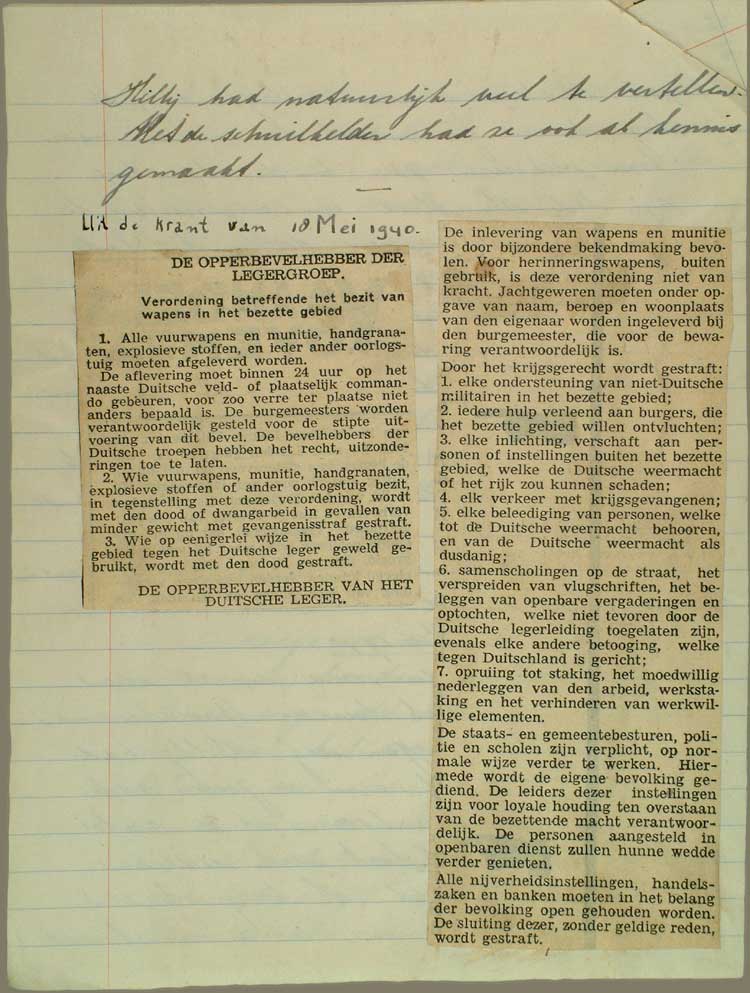 Hilly had natuurlijk veel te vertellen.
Met de schuilkelder had ze ook al kennis
gemaakt.
Uit de krant van 18 Mei 1940.
DE OPPERBEVELHEBBER DER
LEGERGROEP.
Verordening betreffende het bezit van
wapens in het bezette gebied
1. Alle vuurwapens en munitie, handgrana-
ten, explosieve stoffen, en ieder ander oorlogs-
tuig moeten afgeleverd worden.
De aflevering moet binnen 24 uur op het
naaste Duitsche veld- of plaatselijk comman-
do gebeuren, voor zoo verre ter plaatse niet
anders bepaald is. De burgemeesters worden
verantwoordelijk gesteld voor de stipte uit-
voering van dit bevel. De bevelhebbers der
Duitsche troepen hebben het recht, uitzonde-
ringen toe te laten.
2. Wie vuurwapens, munitie, handgranaten,
explosieve stoffen of ander oorlogstuig bezit,
in tegenstelling met deze verordening, wordt
met den dood of dwangarbeid in gevallen van
minder gewicht met gevangenisstraf gestraft.
3. Wie op eenigerlei wijze in het bezette
gebied tegen het Duitsche leger geweld ge-
bruikt, wordt met den dood gestraft.
DE OPPERBEVELHEBBER VAN HET
DUITSCHE LEGER.
De inlevering van wapens en munitie
is door bijzondere bekendmaking bevo-
len. Voor herinneringswapens, buiten
gebruik, is deze verordening niet van
kracht. Jachtgeweren moeten onder op-
gave van naam, beroep en woonplaats
van den eigenaar worden ingeleverd bij
den burgemeester, die voor de bewa-
ring verantwoordelijk is.
Door het krijgsgerecht wordt gestraft:
1. elke ondersteuning van niet-Duitsche
militairen in het bezette gebied;
2. iedere hulp verleend aan burgers, die
het bezette gebied willen ontvluchten;
3. elke inlichting, verschaft aan per-
sonen of instellingen buiten het bezette
gebied, welke de Duitsche weermacht
of het rijk zou kunnen schaden;
4. elk verkeer met krijgsgevangenen;
5. elke beleediging van personen, welke
tot de Duitsche weermacht behooren,
en van de Duitsche weermacht als
dusdanig;
6. samenscholingen op de straat, het
verspreiden van vlugschriften, het be-
leggen van openbare vergaderingen en
optochten, welke niet tevoren door de
Duitsche legerleiding toegelaten zijn,
evenals elke andere betooging, welke
tegen Duitschland is gericht;
7. opruiing tot staking, het moedwillig
nederleggen van den arbeid, werksta-
king en het verhinderen van werkwil-
lige elementen.
De staats- en gemeentebesturen, poli-
tie en scholen zijn verplicht, op nor-
male wijze verder te werken. Hier-
mede wordt de eigene bevolking ge-
diend. De leiders dezer instellingen
zijn voor loyale houding ten overstaan
van de bezettende macht verantwoor-
delijk. De personen aangesteld in
openbaren dienst zullen hunne wedde
verder genieten.
Alle nijverheidsinstellingen, handels-
zaken en banken moeten in het belang
der bevolking open gehouden worden.
De sluiting dezer, zonder geldige reden,
wordt gestraft.